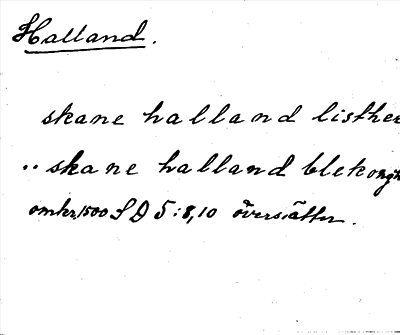 Halland.
skane halland listher
.. skane halland blekongh
omkr. 1500 SD 5:8,10 översätter.